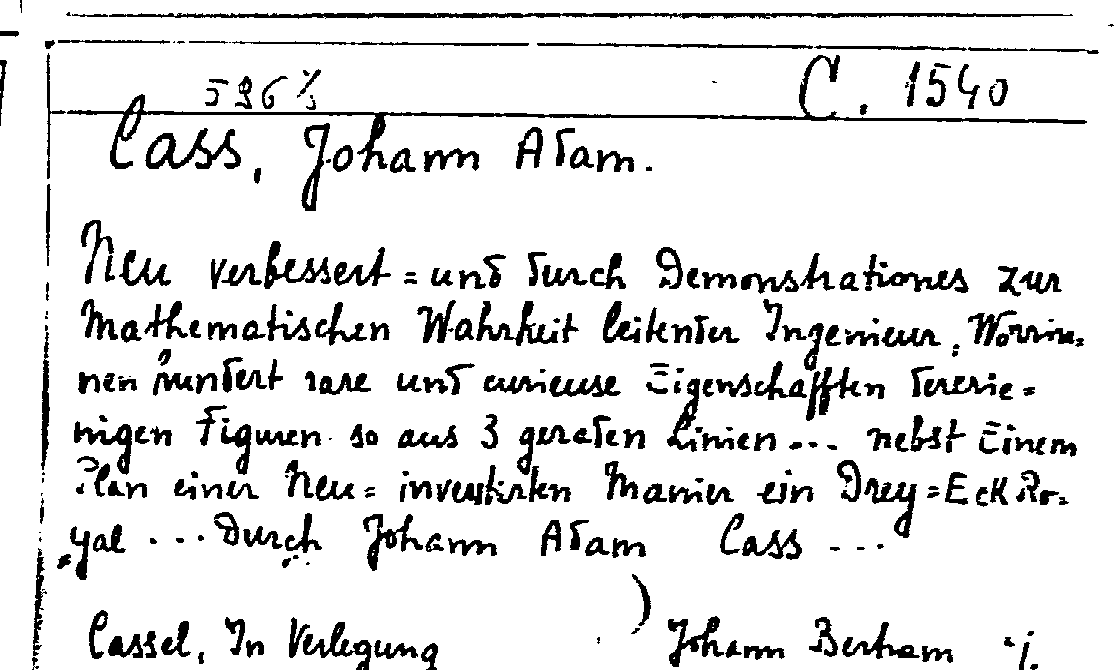 596 C. 1540
Cass, Johann Adam.
Neu verbessert = und durch Demonstrationes zur
Mathematischen Wahrheit leitender Ingenieur, Worrin-
nen hundert rare und curieuse Eigenschafften dererie=
nigen Figuren so aus 3 geraden Linien ... nebst Einem
Plan einer Neu = inventirten Manier ein Drey = Eck Ro-
yal ... durch Johann Adam Cass ...
Cassel, In Verlegung ) Johann Bertram